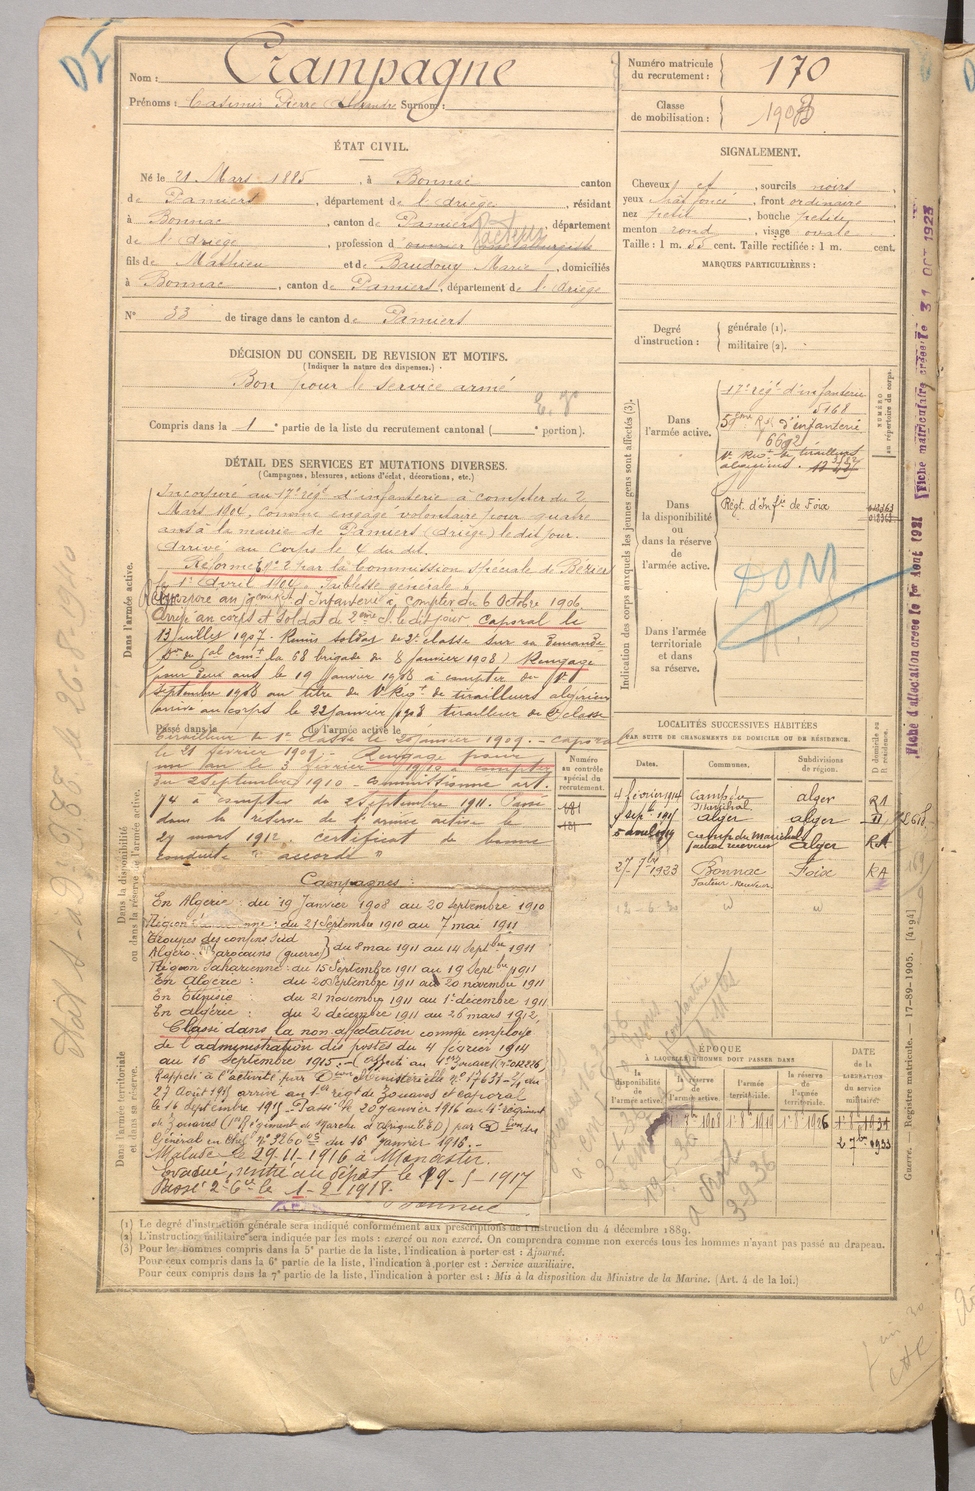 Nom : Crampagne
Prénoms : Casimir Pierre Surnom :
Numéro matricule du recrutement : 170
Classe de mobilisation : 1903
ÉTAT CIVIL.
Né le 21 Mars 1885, à Bonnac canton
de Pamiers, département de l'Ariège, résidant
à Bonnac, canton de Pamiers, département
de l'Ariège, profession d'ouvrier facteur
fils de Mathieu et de Baudouy Marie, domiciliés
à Bonnac, canton de Pamiers, département de l'Ariège
N° 33 de tirage dans le canton de Pamiers
SIGNALEMENT.
Cheveux , sourcils noirs
yeux , front ordinaire
nez petit , bouche petite
menton rond , visage ovale
Taille : 1 m. 55 cent. Taille rectifiée : 1 m. cent.
MARQUES PARTICULIÈRES :
Degré d'instruction : générale (1).
militaire (2).
DÉCISION DU CONSEIL DE REVISION ET MOTIFS.
(Indiquer la nature des dispenses.)
Bon pour le service armé
Compris dans la 1e partie de la liste du recrutement cantonal ( e portion).
DÉTAIL DES SERVICES ET MUTATIONS DIVERSES.
(Campagnes, blessures, actions d'éclat, décorations, etc.)
Dans l'armée active.
Incorporé au 17e régt d'infanterie à compter du 2
Mars 1904, comme engagé volontaire pour quatre
ans à la mairie de Pamiers (Ariège) le dit jour.
Arrivé au corps le 4 du dit.
Réformé n° 2 par la Commission spéciale de Béziers
le 1er avril 1904. Faiblesse générale
d'Infanterie à compter du 6 Octobre 1906
Arrivé au corps et Soldat de 2ème cl. le dit jour Caporal le
13 juillet 1907. Remis soldat de 2e classe sur sa demande
la 68 brigade du 8 janvier 1908) Rengagé
pour deux ans le 19 janvier 1908 à compter du
septembre 1908 au titre du Régt de tirailleurs algériens
arrivé au corps le 22 janvier 1908 tirailleur de 2e classe
Passé dans la de l'armée active le
tirailleur de 1e classe le 20 janvier 1909. - caporal
le 21 février 1909. - Rengagé pour
un an le 3 février 1910 à compter
du 2 septembre 1910 - commissionné art.
74 à compter du 2 septembre 1911. Passé
dans la réserve de l'armée active le
27 mars 1912. certificat de bonne
conduite " accordé "
Dans la disponibilité ou dans la réserve de l'armée active.
Campagnes :
En Algérie : du 19 janvier 1908 au 20 septembre 1910
Région : du 21 septembre 1910 au 7 mai 1911
Troupes des confins Sud
Algéro-Marocains (guerre) du 8 mai 1911 au 14 Septbre 1911
Région Saharienne : du 15 Septembre 1911 au 19 Septbre 1911
En Algérie : du 20 septembre 1911 au 20 novembre 1911
En Tunisie : du 21 novembre 1911 au 1er décembre 1911
En Algérie : du 2 décembre 1911 au 26 mars 1912
Classé dans la non affectation comme employé
de l'administration des postes du 4 février 1914
au 16 septembre 1915.
Rappelé à l'activité par Don Ministérielle n° du
27 Août 1915 arrivé au 1er régt de Zouaves et caporal
le 16 septembre 1915. Passé le 20 janvier 1916 au 4e régiment
de Zouaves (1er Régiment de Marche d'Afrique E.O) par Don du
Général en Chef n° 3260 du 16 janvier 1916.
Malade le 29-11-1916 à Monastir.
Evacué, rentré au dépôt le 19-5-1917
Passé le 1-2-1918.
Dans l'armée territoriale et dans sa réserve.
Indication des corps auxquels les jeunes gens sont affectés (3).
Dans l'armée active.
17e régt d'infanterie
5168
59ème Rgt d'infanterie
6692
Régt de tirailleurs
algériens.
NUMÉRO au répertoire du corps.
Dans la disponibilité ou dans la réserve de l'armée active.
Régt d'Infie de Foix
Dans l'armée territoriale et dans sa réserve.
DOM
LOCALITÉS SUCCESSIVES HABITÉES
PAR SUITE DE CHANGEMENTS DE DOMICILE OU DE RÉSIDENCE.
Numéro au contrôle spécial du recrutement.
Dates. Communes. Subdivisions de région. D domicile ou R résidence.
4 février 1914 alger RA
alger alger
5 avril 1919 Camp du Maréchal facteur receveur alger RA
27-7bre 1923 Bonnac Facteur receveur Foix RA
12-6-30
ÉPOQUE
À LAQUELLE L'HOMME DOIT PASSER DANS
la disponibilité de l'armée active. la réserve de l'armée active. l'armée territoriale. la réserve de l'armée territoriale.
DATE DE LA LIBÉRATION du service militaire.
1908 1926
3-9-36
Fiche d'allocation créée le 1er Août 1921
Fiche matriculaire créée le 31 OCT 1923
Guerre. Registre matricule. 17-89-1905. [A 194]
(1) Le degré d'instruction générale sera indiqué conformément aux prescriptions de l'instruction du 4 décembre 1889.
(2) L'instruction militaire sera indiquée par les mots : exercé ou non exercé. On comprendra comme non exercés tous les hommes n'ayant pas passé au drapeau.
(3) Pour les hommes compris dans la 5e partie de la liste, l'indication à porter est : Ajourné.
Pour ceux compris dans la 6e partie de la liste, l'indication à porter est : Service auxiliaire.
Pour ceux compris dans la 7e partie de la liste, l'indication à porter est : Mis à la disposition du Ministre de la Marine. (Art. 4 de la loi.)